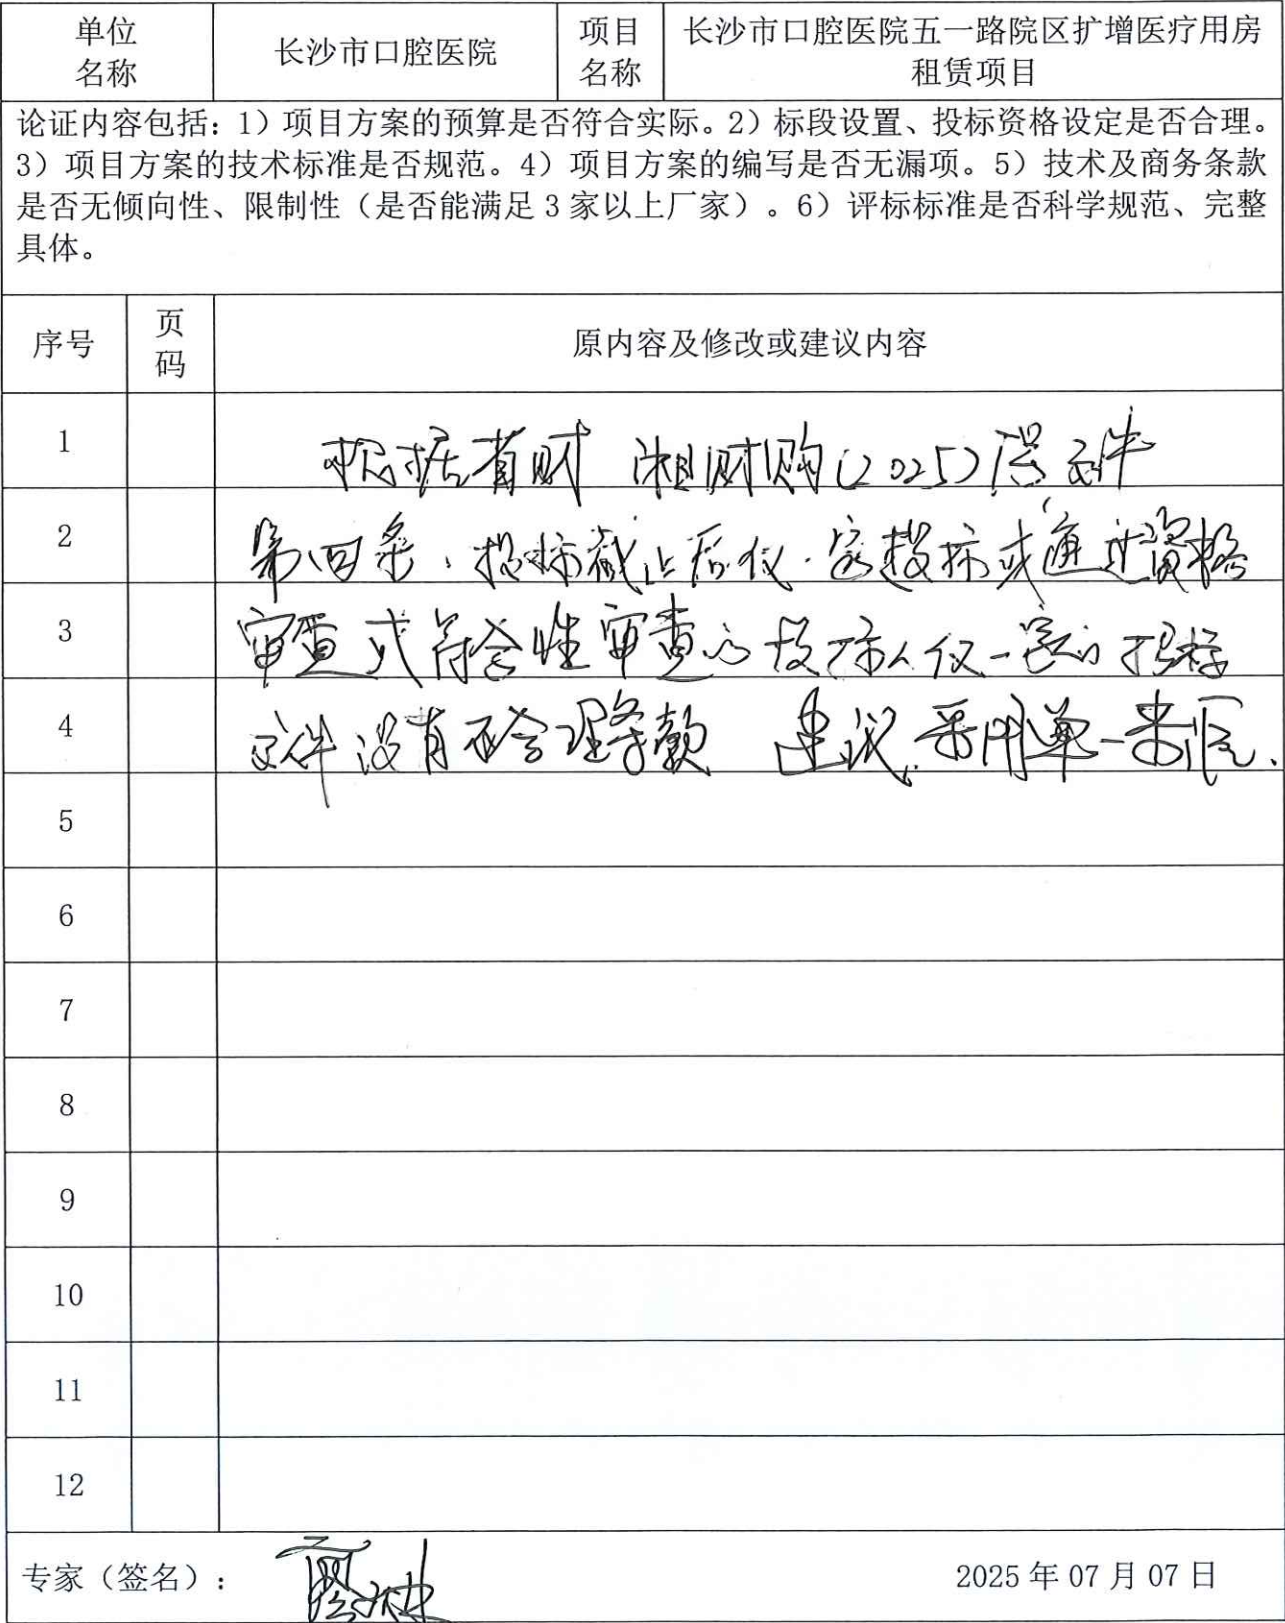 单位名称 长沙市口腔医院 项目名称 长沙市口腔医院五一路院区扩增医疗用房租赁项目
论证内容包括：1）项目方案的预算是否符合实际。2）标段设置、投标资格设定是否合理。
3）项目方案的技术标准是否规范。4）项目方案的编写是否无漏项。5）技术及商务条款
是否无倾向性、限制性（是否能满足 3 家以上厂家）。6）评标标准是否科学规范、完整
具体。
序号 页码 原内容及修改或建议内容
1 根据省财 湘财购(2025) 号文件
2 第四条、投标截止后仅一家投标或通过资格
3 审查或符合性审查的投标人仅一家的 招标
4 文件没有不合理条款 建议采用单一来源.
5
6
7
8
9
10
11
12
专家（签名）： 2025 年 07 月 07 日